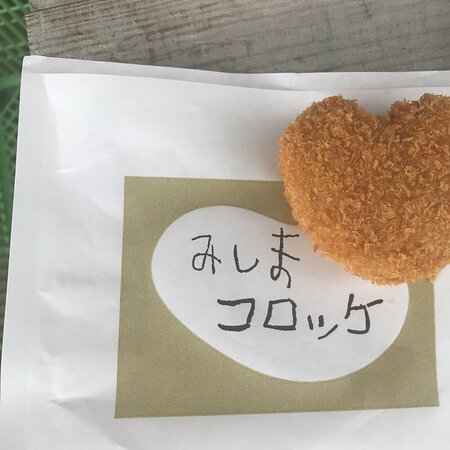 みしまの
コロッケ